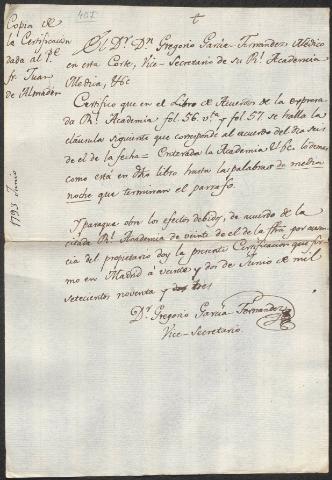 407
Copia de
la Certificacion
dada al P.e
fr. Juan
de Almader
1793 Junio
El D.r D.n Gregorio Garcia Fernandez Medico
en esta Corte, Vice-Secretario de su R.l Academia
Medica, &c
Certifico que en el Libro de Acuerdos de la expresada
R.l Academia fol. 56. v.ta y fol. 57. se halla la
clausula siguiente que corresponde al acuerdo del dia
de el de la fecha = Enterada la Academia &c. lo demas
como està en dho libro hasta las palabras de media
noche que terminan el parrafo.
Y para que obre los efectos debidos, de acuerdo de la
citada R.l Academia de veinte de el de la fha, por ausen-
cia del propietario doy la presente Certificacion que fir-
mo en Madrid à veinte y dos de Junio de mil
setecientos noventa y tres
D.r Gregorio Garcia Fernandez
Vice-Secretario